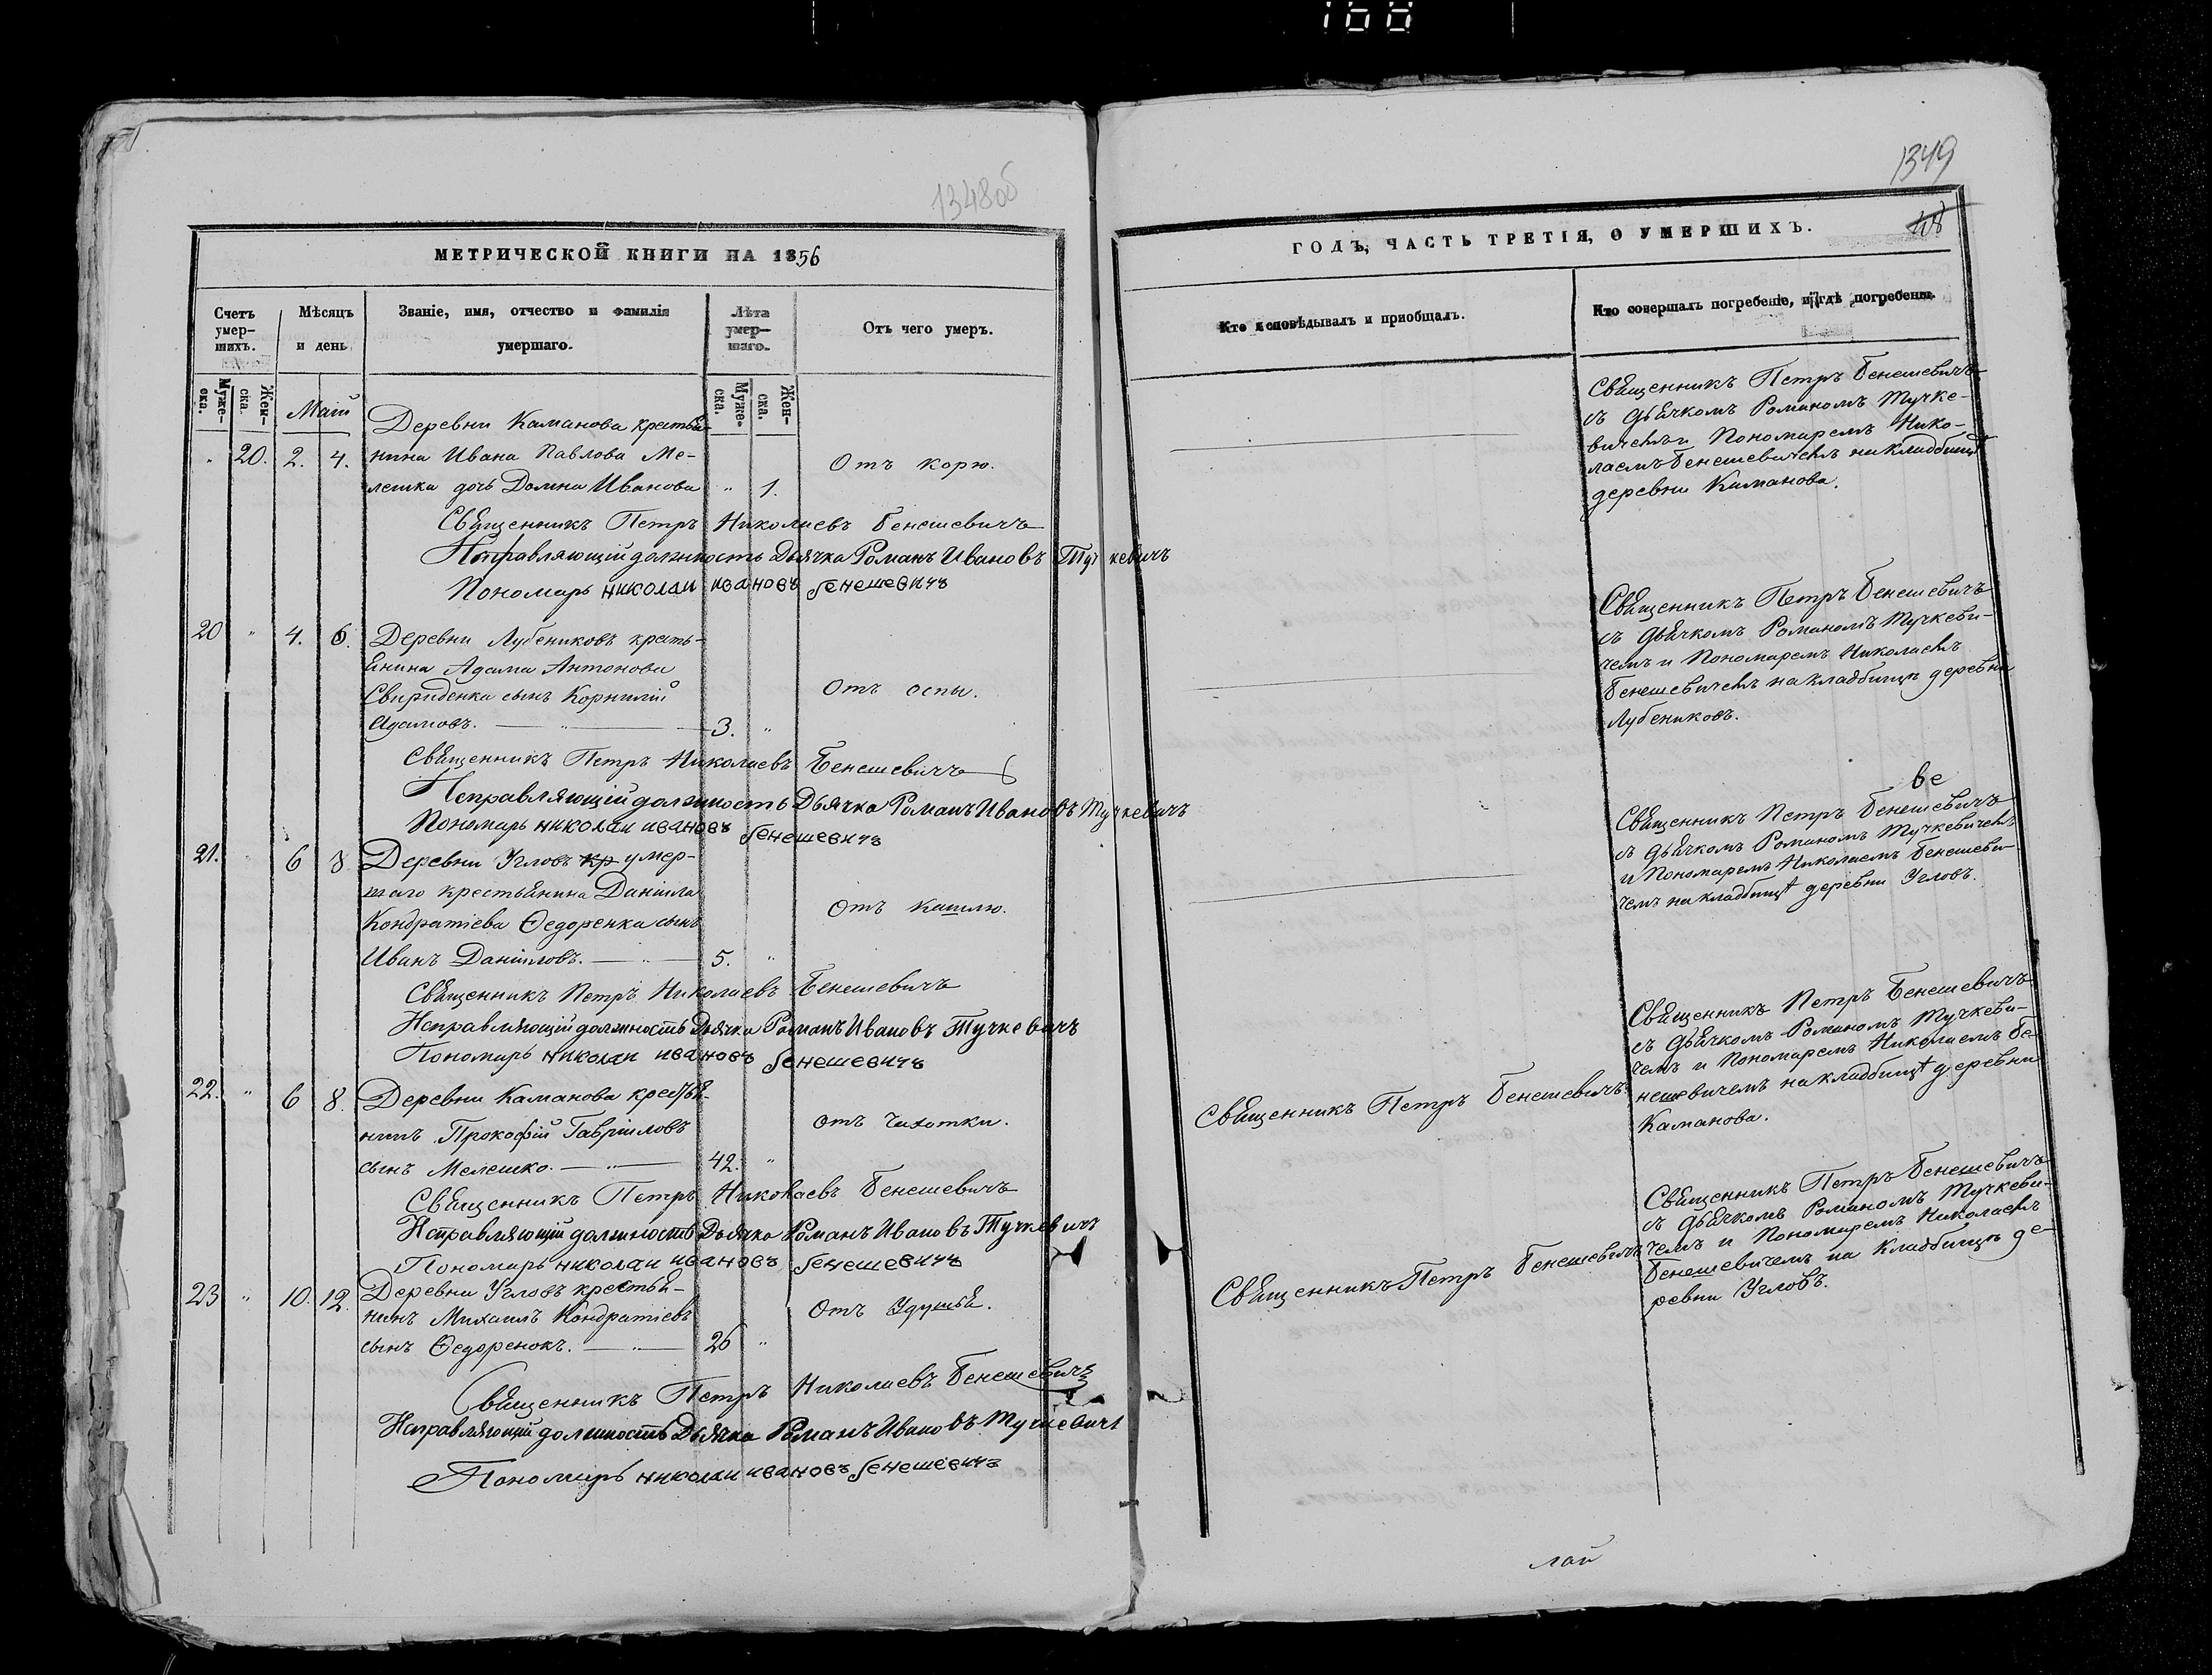 168
1348об
МЕТРИЧЕСКОЙ КНИГИ НА 1856
Счетъ умер-шихъ.
Мѣсяцъ и день
Званіе, имя, отчество и фамилія умершаго.
Лѣта умер-шаго.
Отъ чего умеръ.
Муже-ска.
Жен-ска.
Муже-ска.
Жен-ска.
Май
Деревни Каманова крестья-
" 20. 2. 4. нина Ивана Павлова Ме- Отъ корю.
лешка дочь Домна Иванова " 1.
Священникъ Петръ Николаевъ Бенешевичъ
Исправляющій должность Дьячка Романъ Ивановъ Тучкевичъ
Пономарь николаи ивановъ бенешевичъ
20 " 4. 6. Деревни Лубениковъ кресть-
янина Адама Антонова
Свириденка сынъ Корнилій Отъ оспы.
Адамовъ. — " — 3. "
Священникъ Петръ Николаевъ Бенешевичъ
Исправляющій должность Дьячка Романъ Ивановъ Тучкевичъ
Пономарь николаи ивановъ бенешевичъ
21. " 6 8 Деревни Угловъ кр умер-
шаго крестьянина Даніила
Кондратіева Ѳедоренка сынъ Отъ кашлю.
Иванъ Даніиловъ. — " — 5. "
Священникъ Петръ Николаевъ Бенешевичъ
Исправляющій должность Дьячка Романъ Ивановъ Тучкевичъ
Пономарь николаи ивановъ бенешевичъ
22. " 6 8. Деревни Каманова крестья-
нинъ Прокофій Гавріиловъ отъ чихотки.
сынъ Мелешко. — " — 42. "
Священникъ Петръ Николаевъ Бенешевичъ
Исправляющій должность Дьячка Романъ Ивановъ Тучкевичъ
Пономарь николаи ивановъ бенешевичъ
23 " 10. 12. Деревни Угловъ крестья-
нинъ Михаилъ Кондратіевъ Отъ Удушья.
сынъ Ѳедоренокъ. — " — 26 "
Священникъ Петръ Николаевъ Бенешевичъ
Исправляющій должность Дьячка Романъ Ивановъ Тучкевичъ
Пономарь николаи ивановъ бенешевичъ
1349
ГОДЪ, ЧАСТЬ ТРЕТІЯ, О УМЕРШИХЪ.
Кто исповѣдывалъ и пріобщалъ.
Кто совершалъ погребеніе, и гдѣ погребены.
Священникъ Петръ Бенешевичъ
съ дьячкомъ Романомъ Тучке-
вичемъ и Пономаремъ Нико-
лаемъ Бенешевичемъ на кладбищѣ
деревни Каманова.
Священникъ Петръ Бенешевичъ
съ дьячкомъ Романомъ Тучкеви-
чемъ и Пономаремъ Николаемъ
Бенешевичемъ на кладбищѣ деревни
Лубениковъ.
ве
Священникъ Петръ Бенешевичъ
съ дьячкомъ Романомъ Тучкевичемъ
и Пономаремъ Николаемъ Бенешеви-
чемъ на кладбищѣ деревни Угловъ.
Священникъ Петръ Бенешевичъ
съ дьячкомъ Романомъ Тучкеви-
чемъ и Пономаремъ Николаемъ Бе-
Священникъ Петръ Бенешевичъ. нешевичемъ на кладбищѣ деревни
Каманова.
Священникъ Петръ Бенешевичъ
съ дьячкомъ Романомъ Тучкеви-
Священникъ Петръ Бенешевичъ чемъ и Пономаремъ Николаемъ
Бенешевичемъ на кладбищѣ де-
ревни Угловъ.
лай